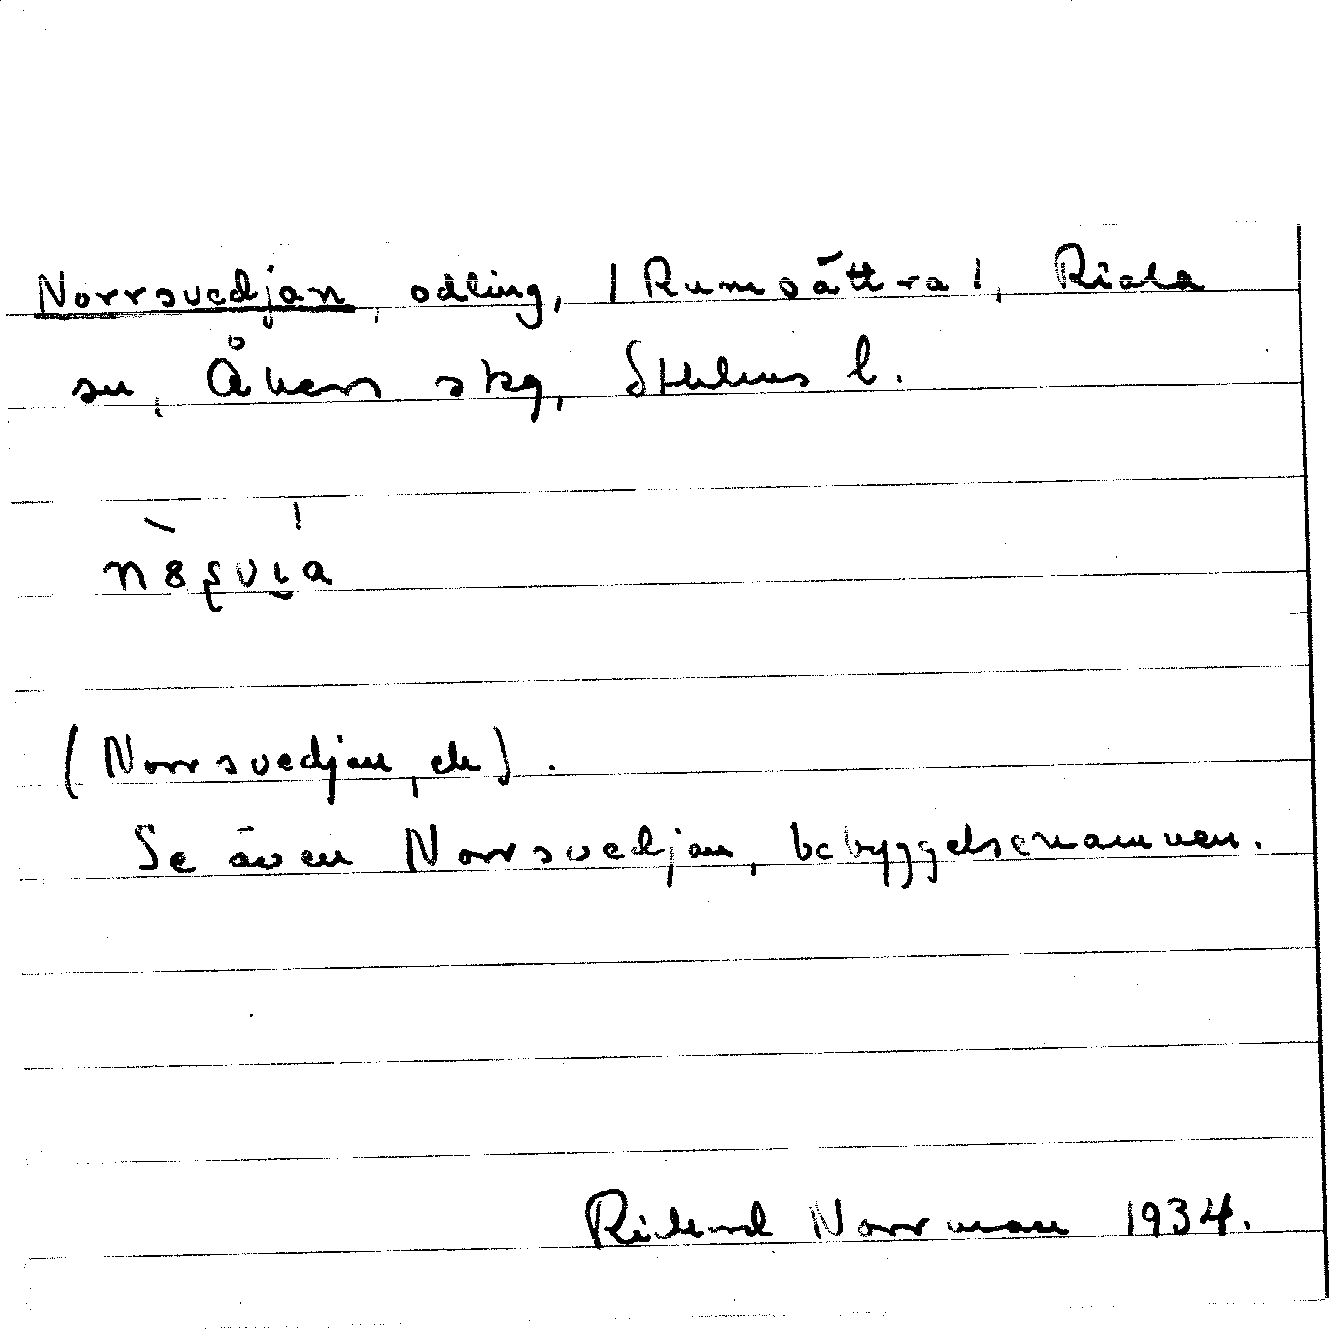 Norrsvedjan, odling, | Rumsättra |, Riala
sn, Åkers skg, Sthlms l.
(Norrsvedjan, ek).
Se även Norrsvedjan, bebyggelsenamnen.
Richard Norrman 1934.